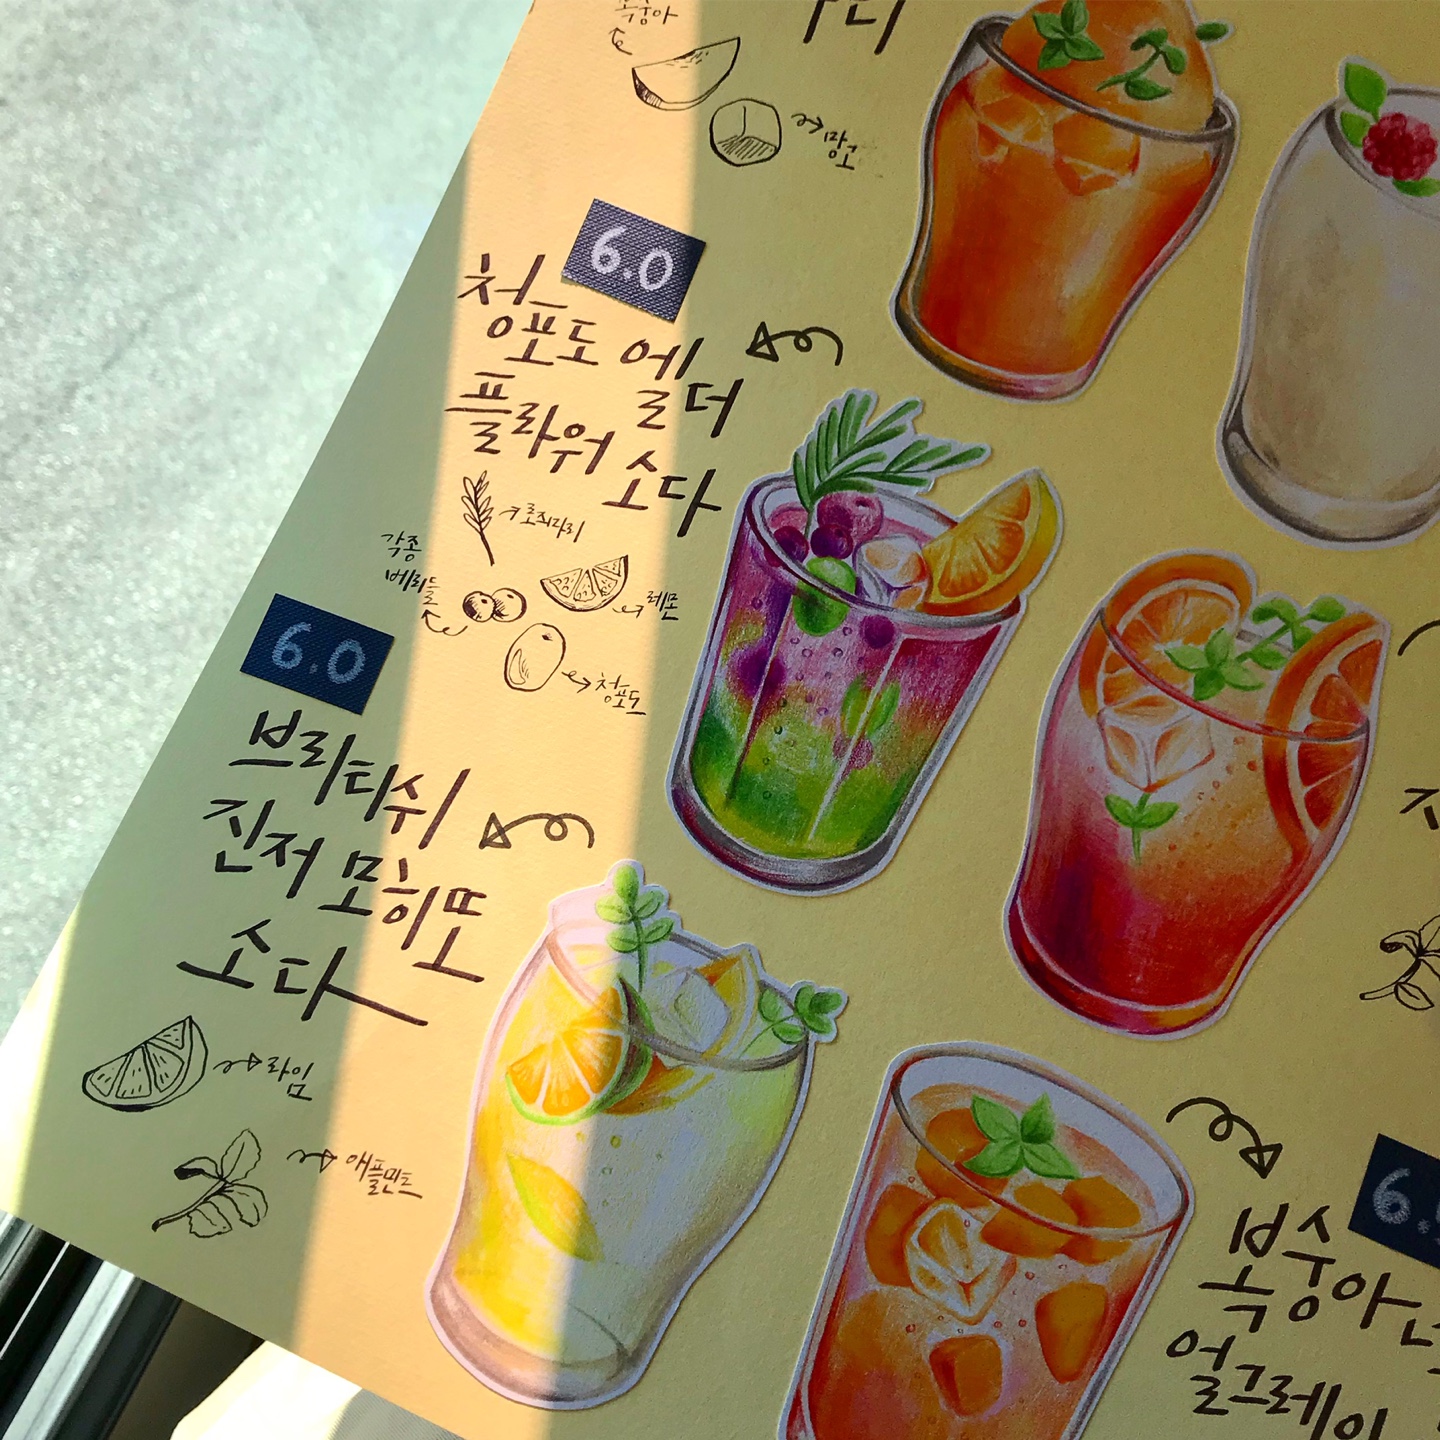 복숭아
망고
6.0
청포도 엘더
플라워 소다
로즈마리
각종
베리들
레몬
청포도
6.0
브리티쉬
진저 모히또
소다
라임
애플민트
복숭아
얼그레이